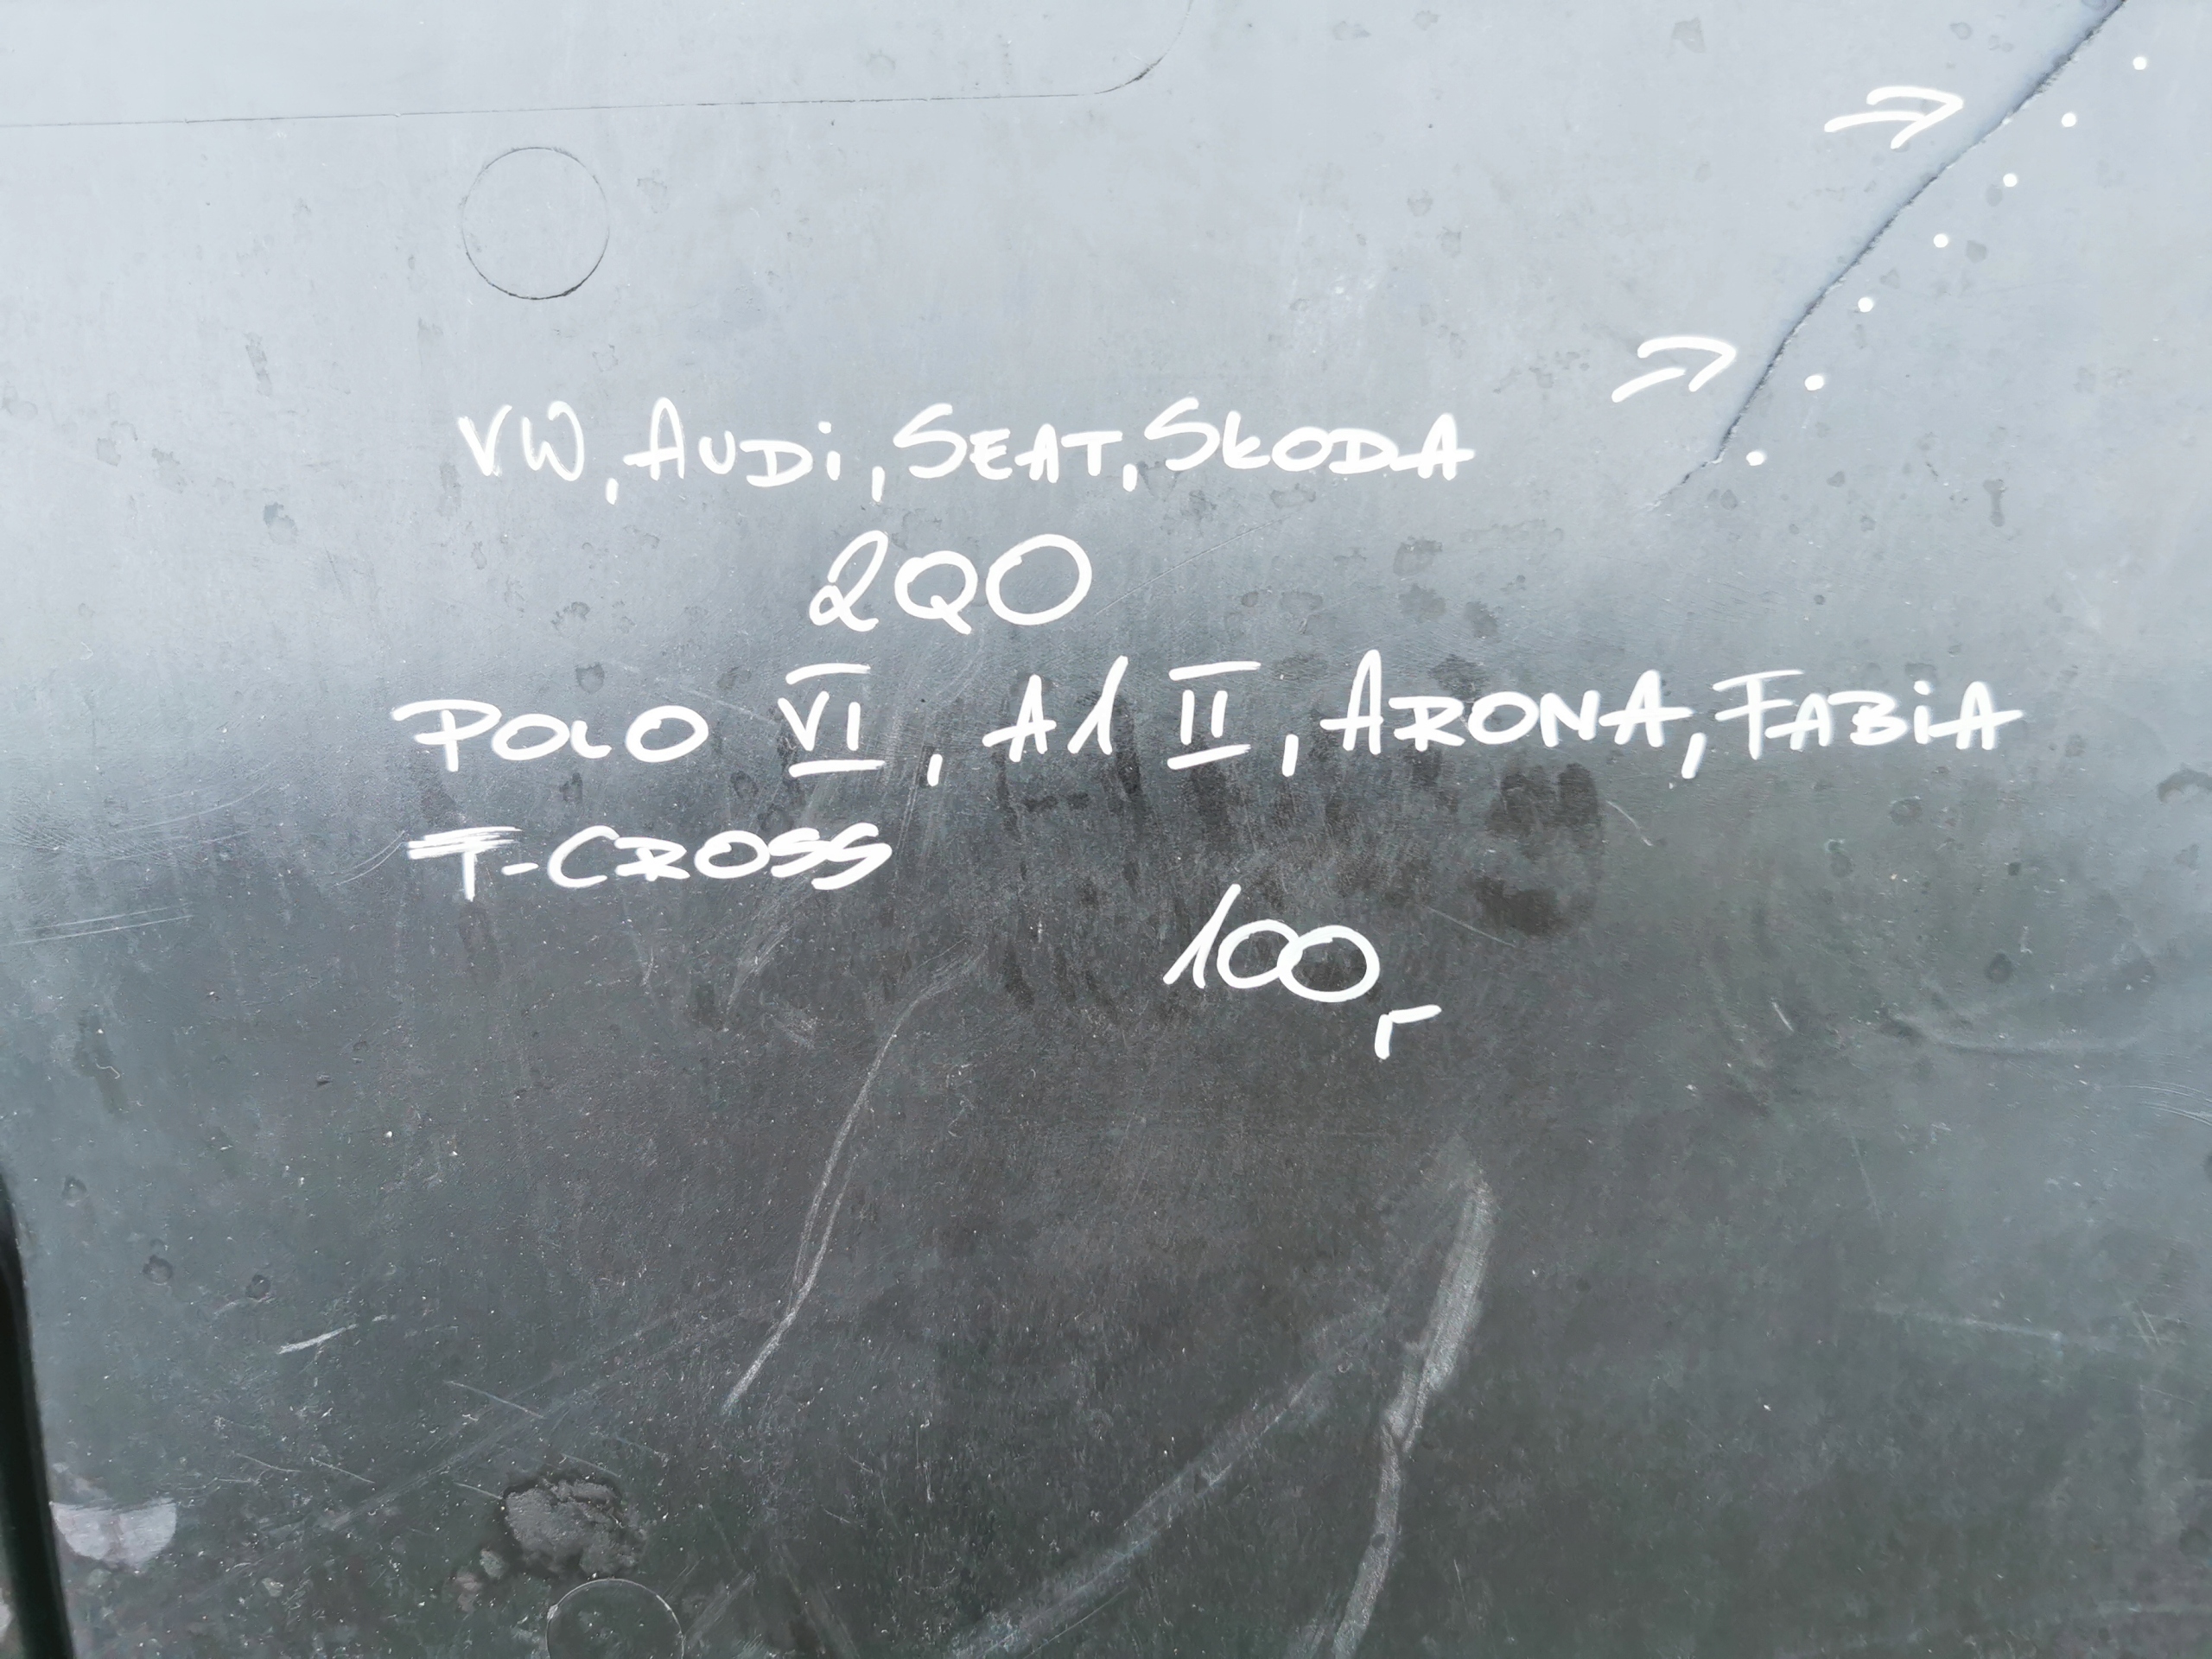 VW, AUDi, SEAT, SKODA
2Q0
POLO VI, A1 II, ARONA, FABiA
T-CROSS
100
r